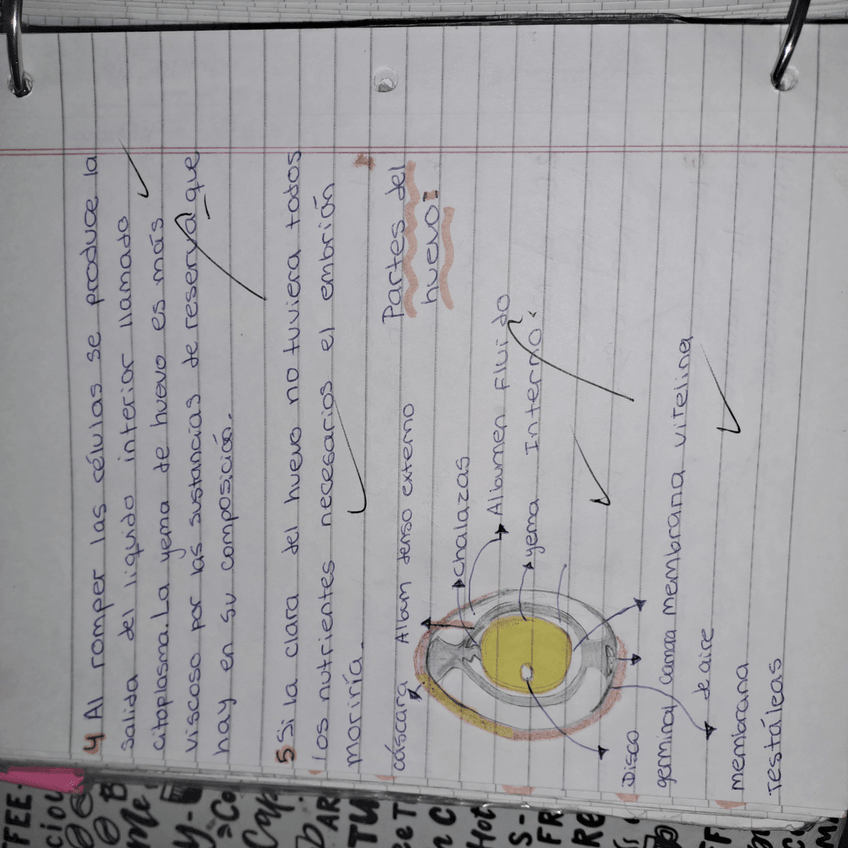 4 Al romper las células se produce la
salida del liquido interior llamado
citoplasma.La yema de huevo es más
viscoso por las sustancias de reserva que
hay en su composición.
5 Si la clara del huevo no tuviera todos
los nutrientes necesarios el embrión
moriría.
Partes del
huevo:
cáscara Albam denso externo
chalazas
Albumen fluido
yema Interno.
Disco
germinal camara membrana vitelina
de aire
membrana
Testáleas